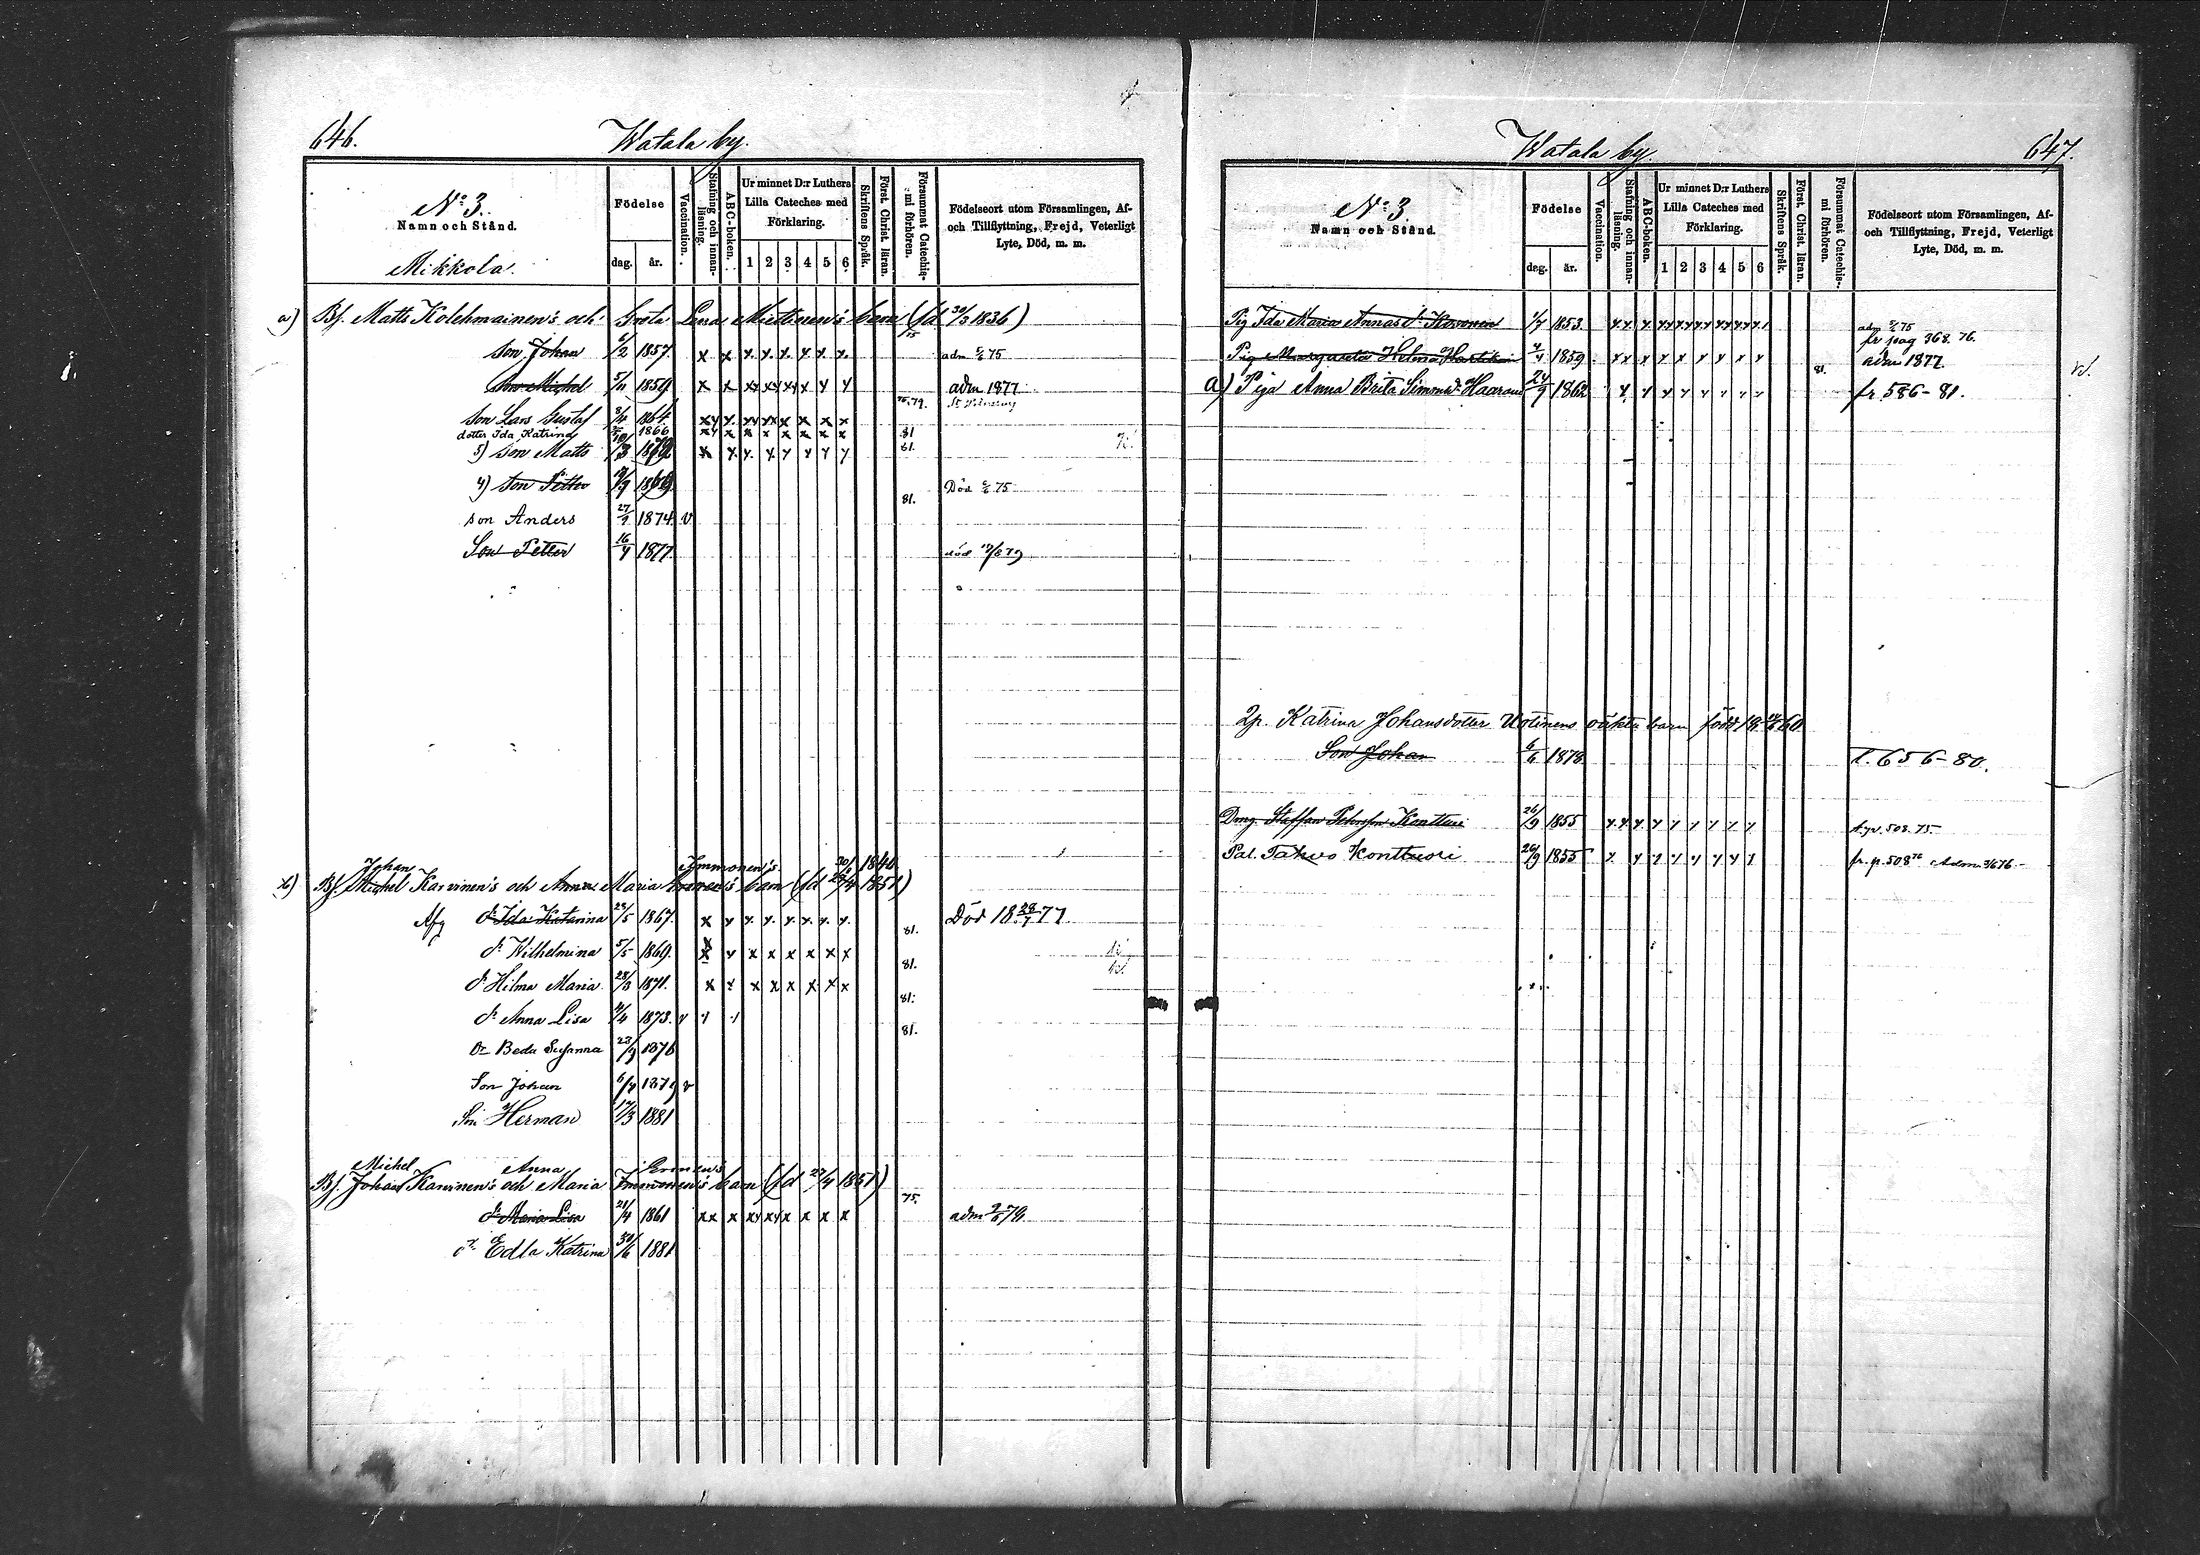 646.
Watala by.
No 3.
Namn och Stånd.
Mikkola.
Födelse
dag. år.
Vaccination.
Stafning och innanläsning.
ABC-boken.
Ur minnet D:r Luthers Lilla Cateches med Förklaring.
1 2 3 4 5 6
Skriftens Språk.
Först. Christ. läran.
Försummat Catechismi förhören.
Födelseort utom Församlingen, Af- och Tillflyttning, Frejd, Veterligt Lyte, Död, m. m.
a) Bf. Matts Kolehmainen's och Greta Lena Miettinen's barn (fd 30/3 1836)
75
son Johan 6/2 1857. x x x. x. x. x x x. adm 75
son Michel 5/11 1859 x x xx xx xx x x x adm 1877
75.79.
son Lars Gustaf 1864.
dotter Ida Katrina 1866 81
3) son Matts 81.
4) son Petter Död 75
81.
son Anders 27/9 1874. v
Son Petter 16/4 1877 död 79
Johan Immonen's 1840
b) Bf. Michel Karvinen's och Anna Maria barn (fd 1851)
Afg dr Ida Katarina 1867. x x x. x. x. x. x. x. Död 18 28/7 77
81.
dr Wilhelmina 5/5 1869. x x x x x x x x
81.
dr Hilma Maria. 1871. x x x x x x x x
81.
dr Anna Lisa 1873. v
81.
Dr Beda Susanna 23/9 1876
Son Johan 1879 v
Son Herman 17/3 1881
Michel Anna
Bf. Johan Karvinen's och Maria Immonen's barn (fd 27/4 1851)
75.
dr Maria Lisa 21/4 1861 xx x xx xx x x x x adm 79.
dr Edla Katrina 30/6 1881
Watala by.
647.
No 3.
Namn och Stånd.
Födelse
dag. år.
Vaccination.
Stafning och innanläsning.
ABC-boken.
Ur minnet D:r Luthers Lilla Cateches med Förklaring.
1 2 3 4 5 6
Skriftens Språk.
Först. Christ. läran.
Försummat Catechismi förhören.
Födelseort utom Församlingen, Af- och Tillflyttning, Frejd, Veterligt Lyte, Död, m. m.
Pig Ida Maria Annas dr Kononen 1853. adm 75
fr pag 368. 76.
Pig Margareta Helena 4/4 1859. adm 1877.
81.
a) Piga Anna Brita Simonsd. 24/9 1862 fr. 586-81.
2p. Katrina Johansdotter Uotinens oäkta barn född 60
Son Johan 6/6 1878 t. 656-80.
Dreng Staffan Kontturi 26/9 1855 508. 75
Pal. Tahvo Konttuori 26/9 1855 fr. p. 508 76